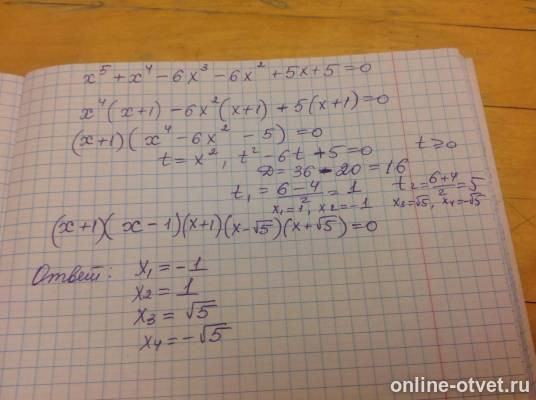 x⁵ + x⁴ - 6x³ - 6x² + 5x + 5 = 0
x⁴(x+1) - 6x²(x+1) + 5(x+1) = 0
(x+1)(x⁴ - 6x² - 5) = 0
t = x², t² - 6t + 5 = 0 t ≥ 0
D = 36 - 20 = 16
t₁ = (6-4)/2 = 1 t₂ = (6+4)/2 = 5
x₁ = 1, x₂ = -1 x₃ = √5, x₄ = -√5
(x+1)(x-1)(x+1)(x-√5)(x+√5) = 0
Ответ: x₁ = -1
x₂ = 1
x₃ = √5
x₄ = -√5
online-otvet.ru